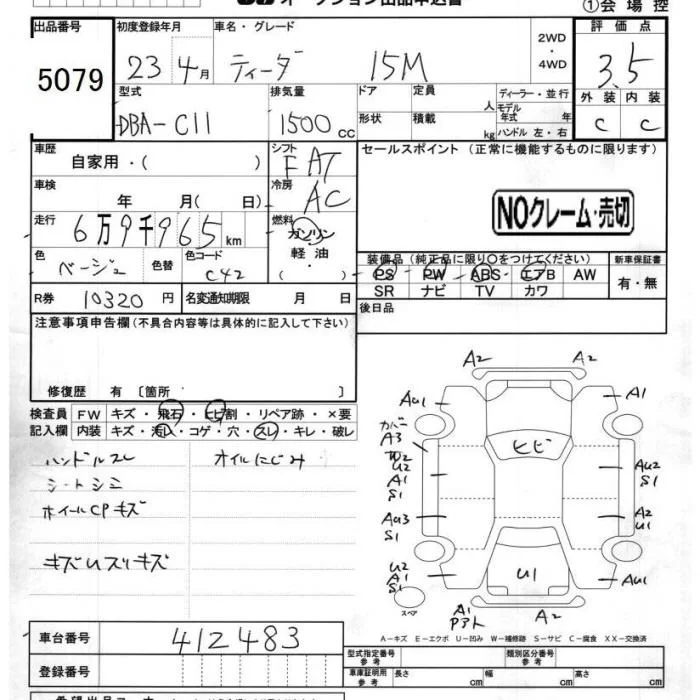 オークション出品申込書
①会場控
出品番号 初度登録年月 車名・グレード 2WD・4WD 評価点
5079 23 4月 ティーダ 15M 3.5
型式 排気量 ドア 定員 人 ディーラー・並行 外装 内装
DBA-C11 1500cc 形状 積載 kg モデル年式 年 ハンドル 左・右 C C
車歴 シフト セールスポイント（正常に機能するものに限ります）
自家用・( ) FAT
車検 冷房
年 月( 日) AC NOクレーム・売切
走行 燃料
6万9千965km ガソリン
色 色替 色コード 軽油・ 装備品（純正品に限り〇をつけてください） 新車保証書
ベージュ C42 ( ) PS PW ABS エアB AW 有・無
SR ナビ TV カワ
R券 10320円 名変通知期限 月 日 後日品
注意事項申告欄（不具合内容等は具体的に記入して下さい）
修復歴 有 〔箇所 〕
検査員 FW キズ・飛石・ヒビ割・リペア跡・×要
記入欄 内装 キズ・汚れ・コゲ・穴・スレ・キレ・破レ
ハンドルスレ オイルにじみ
シートシミ
ホイールCPキズ
キズUスリキズ
A2 A2
AU1 A1
カバー
A3 ヒビ
U2
A1 AU2
S1 S1
AU3 A2
S1 U1
U2
A1 U1 AU1
S1
スペア A1 A2
A-キズ E-エクボ U-凹み W-補修跡 S-サビ C-腐食 XX-交換済
車台番号 412483
登録番号
型式指定番号 参考 類別区分番号 参考
車庫証明用 参考 長さ cm 幅 cm 高さ cm